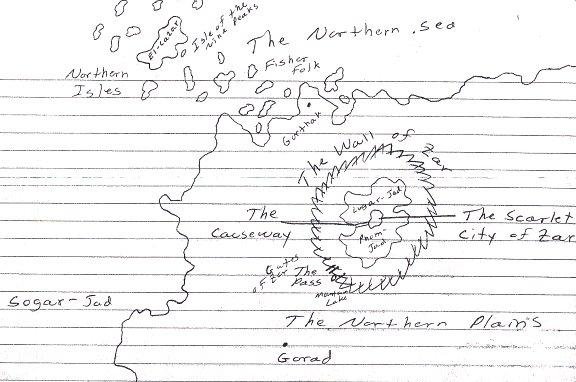 The Northern Sea
El-Lazar
Isle of the
Nine Peaks
Northern
Isles
Fisher
Folk
Garthak
The Wall of Zar
Lugar-Jad
The
Causeway
The Scarlet
City of Zar
Phom-
Jad
Gates
of Zar
The
Pass
Mountain
Lake
Sogar-Jad
The Northern Plains
Gorad